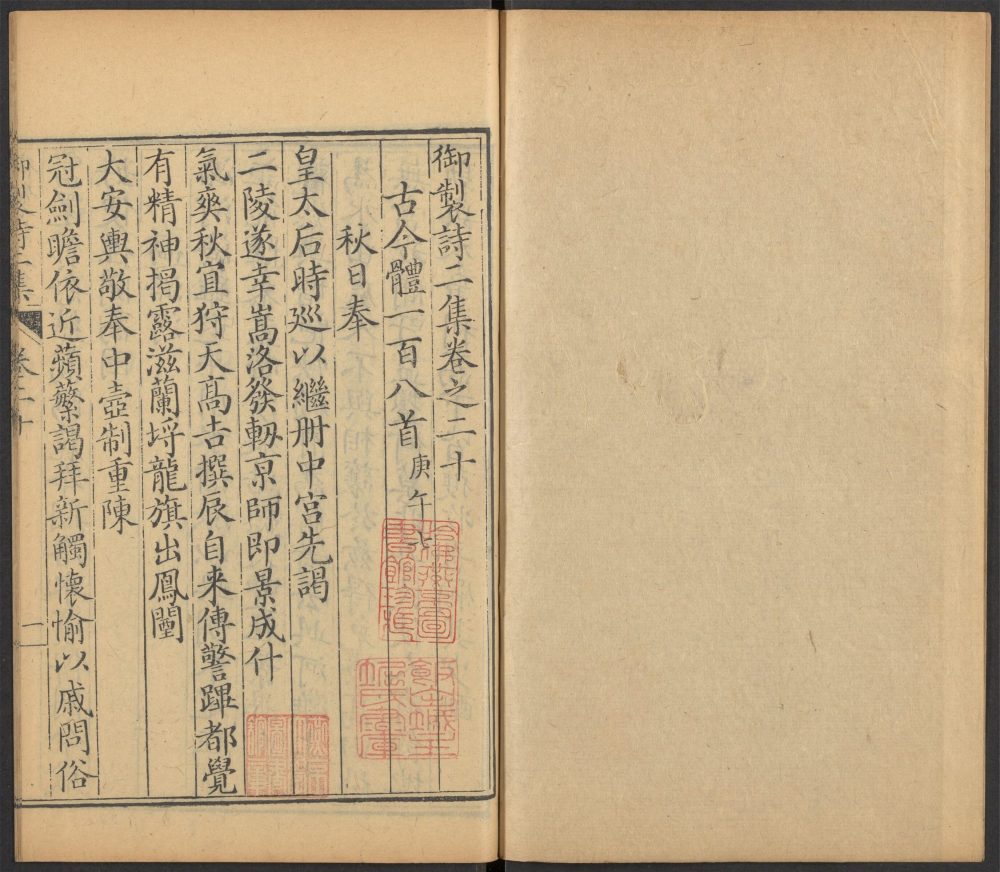 御製詩二集卷之二十
古今體一百八首庚午八
秋日奉
皇太后時巡以繼册中宫先謁
二陵遂幸嵩洛發軔京師即景成什
氣爽秋宜狩天高吉撰辰自来傳警蹕都覺
有精神掲露滋蘭埒龍旗出鳳闉
大安輿敬奉中壼制重陳
冠劍瞻依近蘋蘩謁拜新觸懷愉以戚問俗
御製詩二集
卷二十
一